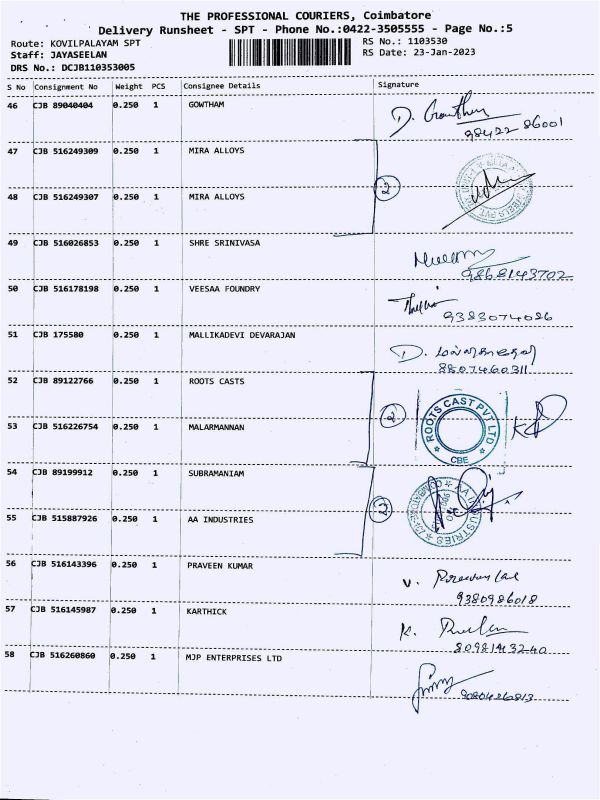 THE PROFESSIONAL COURIERS, Coimbatore
Delivery Runsheet - SPT - Phone No.:0422-3505555 - Page No.:5
Route: KOVILPALAYAM SPT RS No.: 1103530
Staff: JAYASEELAN RS Date: 23-Jan-2023
DRS No.: DCJB110353005
S No Consignment No Weight PCS Consignee Details Signature
46 CJB 89040404 0.250 1 GOWTHAM D. Gowtham
98422 86001
47 CJB 516249309 0.250 1 MIRA ALLOYS
2
48 CJB 516249307 0.250 1 MIRA ALLOYS
49 CJB 516026853 0.250 1 SHRE SRINIVASA
9868143702
50 CJB 516178198 0.250 1 VEESAA FOUNDRY
9383074086
51 CJB 175580 0.250 1 MALLIKADEVI DEVARAJAN D.
8807460311
52 CJB 89122766 0.250 1 ROOTS CASTS
2 ROOTS CAST PVT LTD
CBE
53 CJB 516226754 0.250 1 MALARMANNAN
54 CJB 89199912 0.250 1 SUBRAMANIAM
2 AA INDUSTRIES
55 CJB 515887926 0.250 1 AA INDUSTRIES
56 CJB 516143396 0.250 1 PRAVEEN KUMAR V.
9380986018
57 CJB 516145987 0.250 1 KARTHICK K.
8098143240
58 CJB 516260860 0.250 1 MJP ENTERPRISES LTD